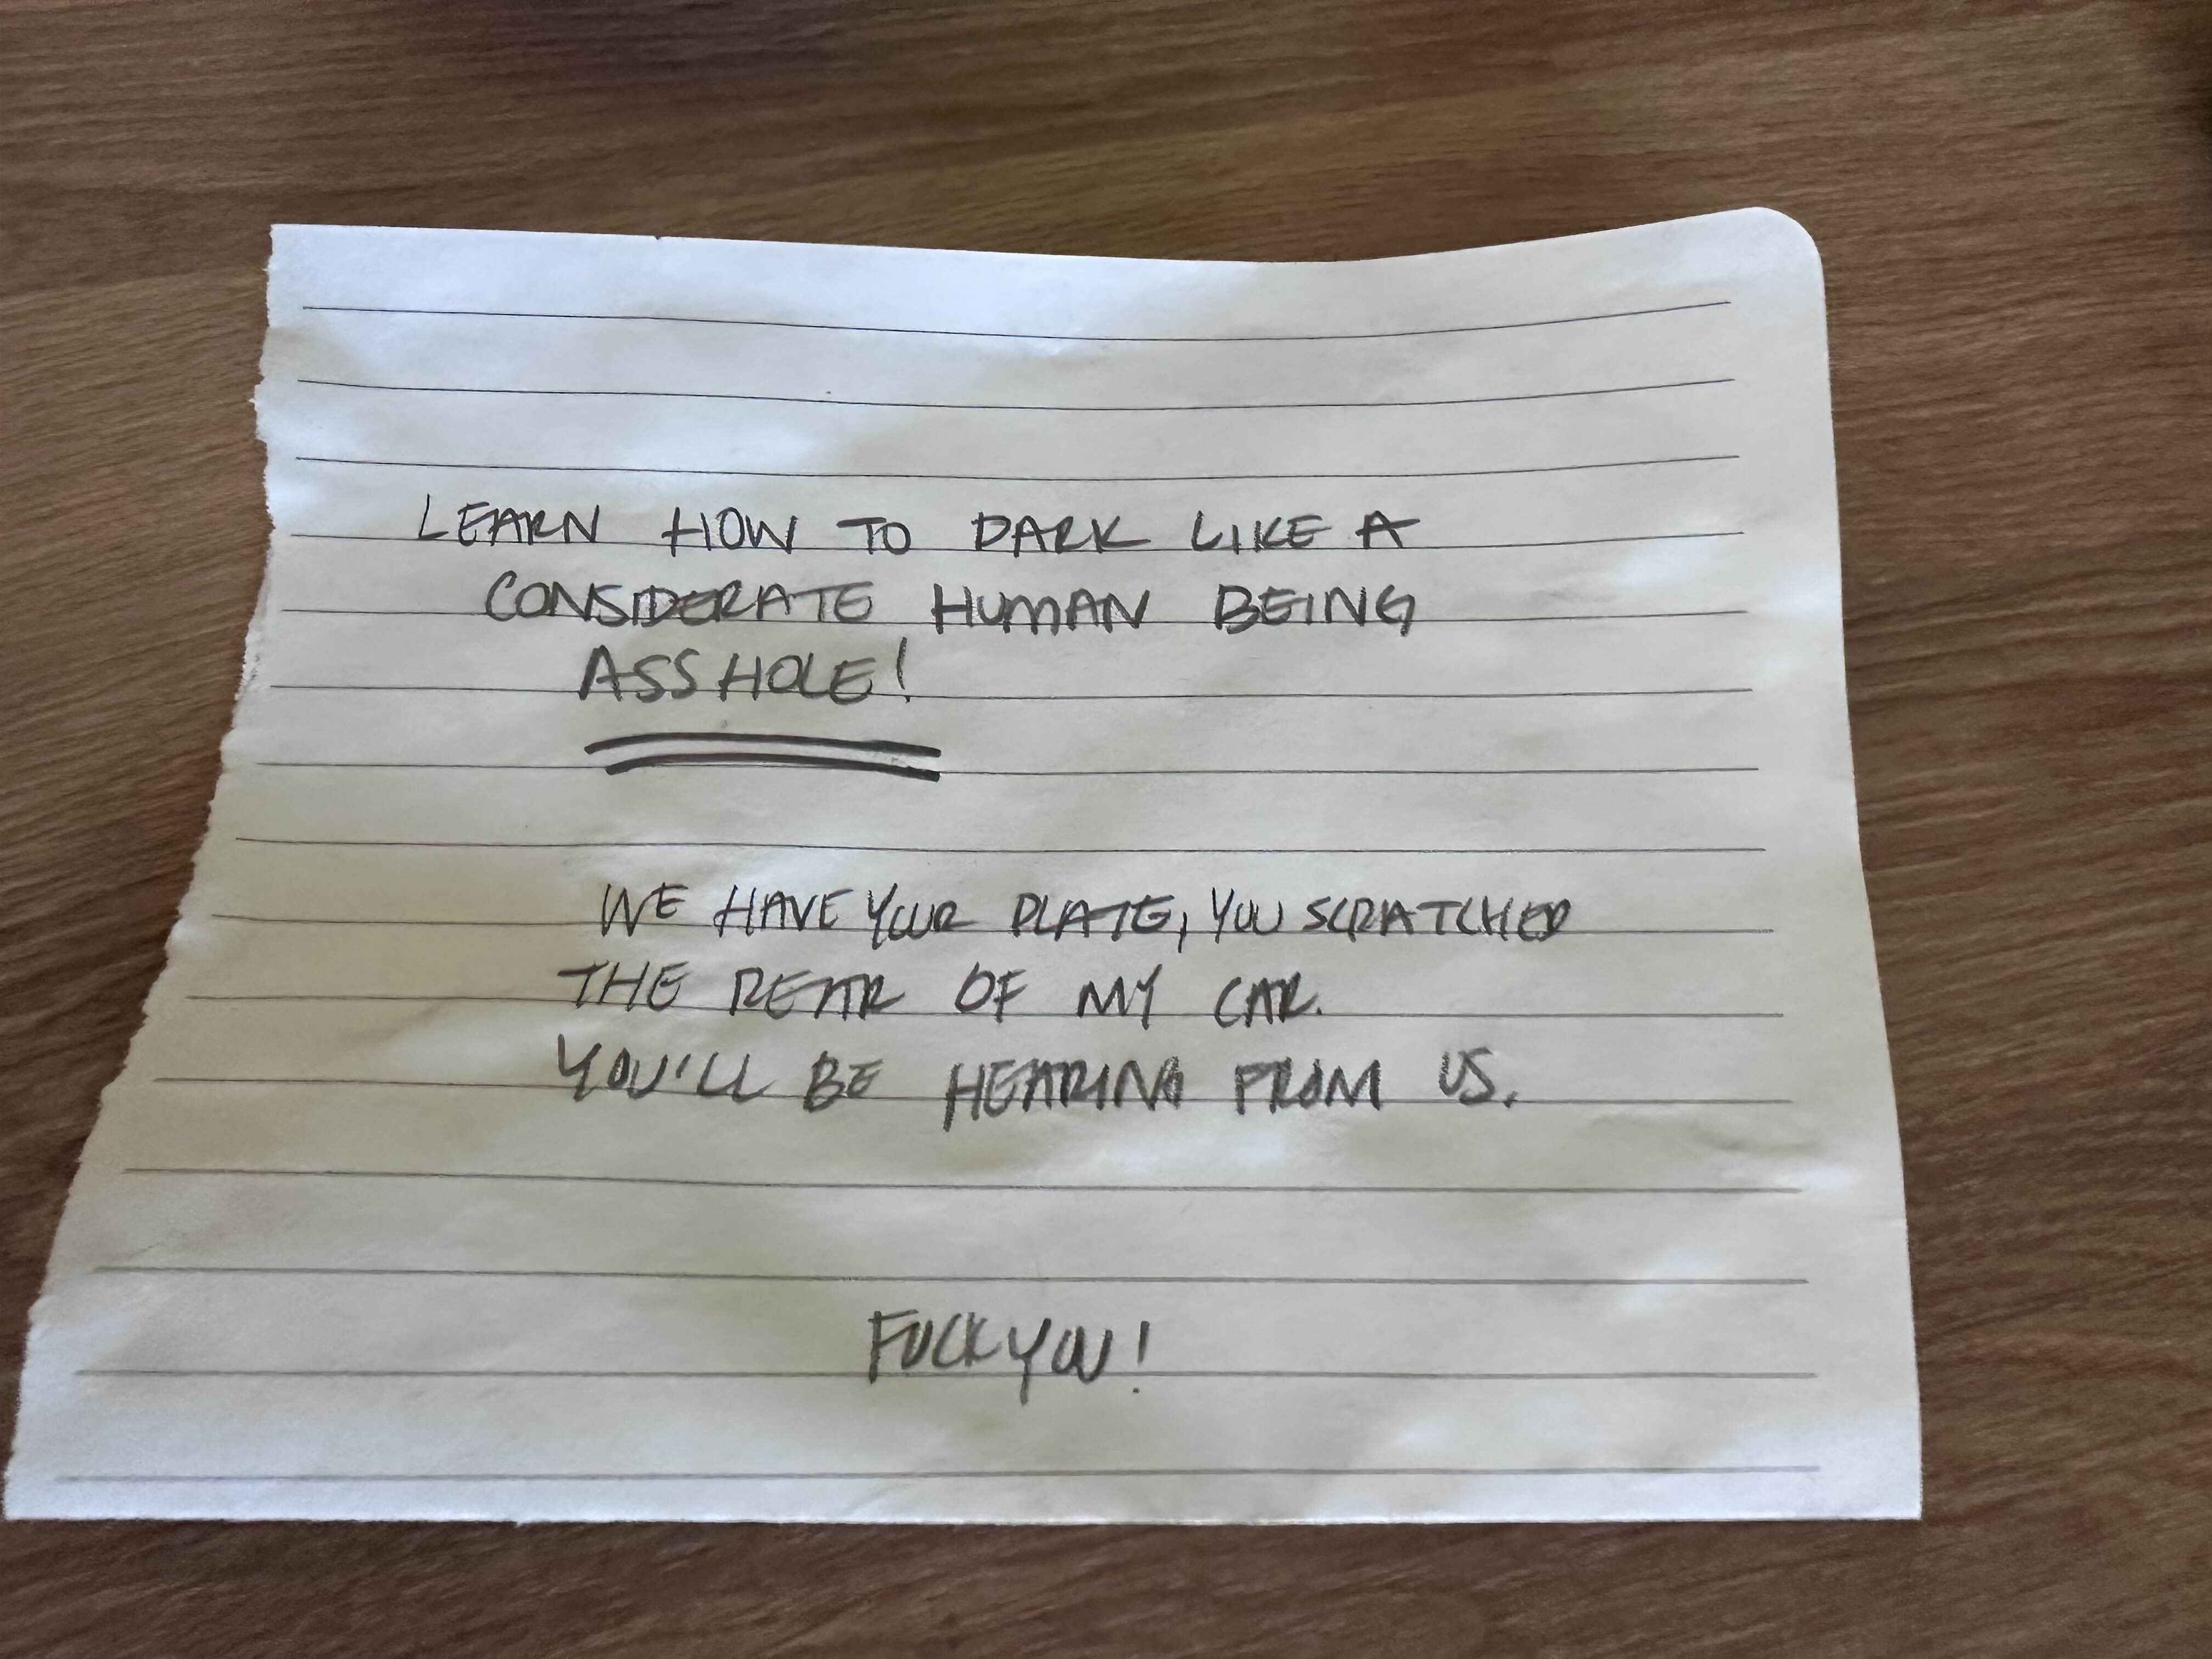 LEARN HOW TO PARK LIKE A
CONSIDERATE HUMAN BEING
ASSHOLE!
WE HAVE YOUR PLATE, YOU SCRATCHED
THE REAR OF MY CAR.
YOU'LL BE HEARING FROM US.
FUCK YOU!